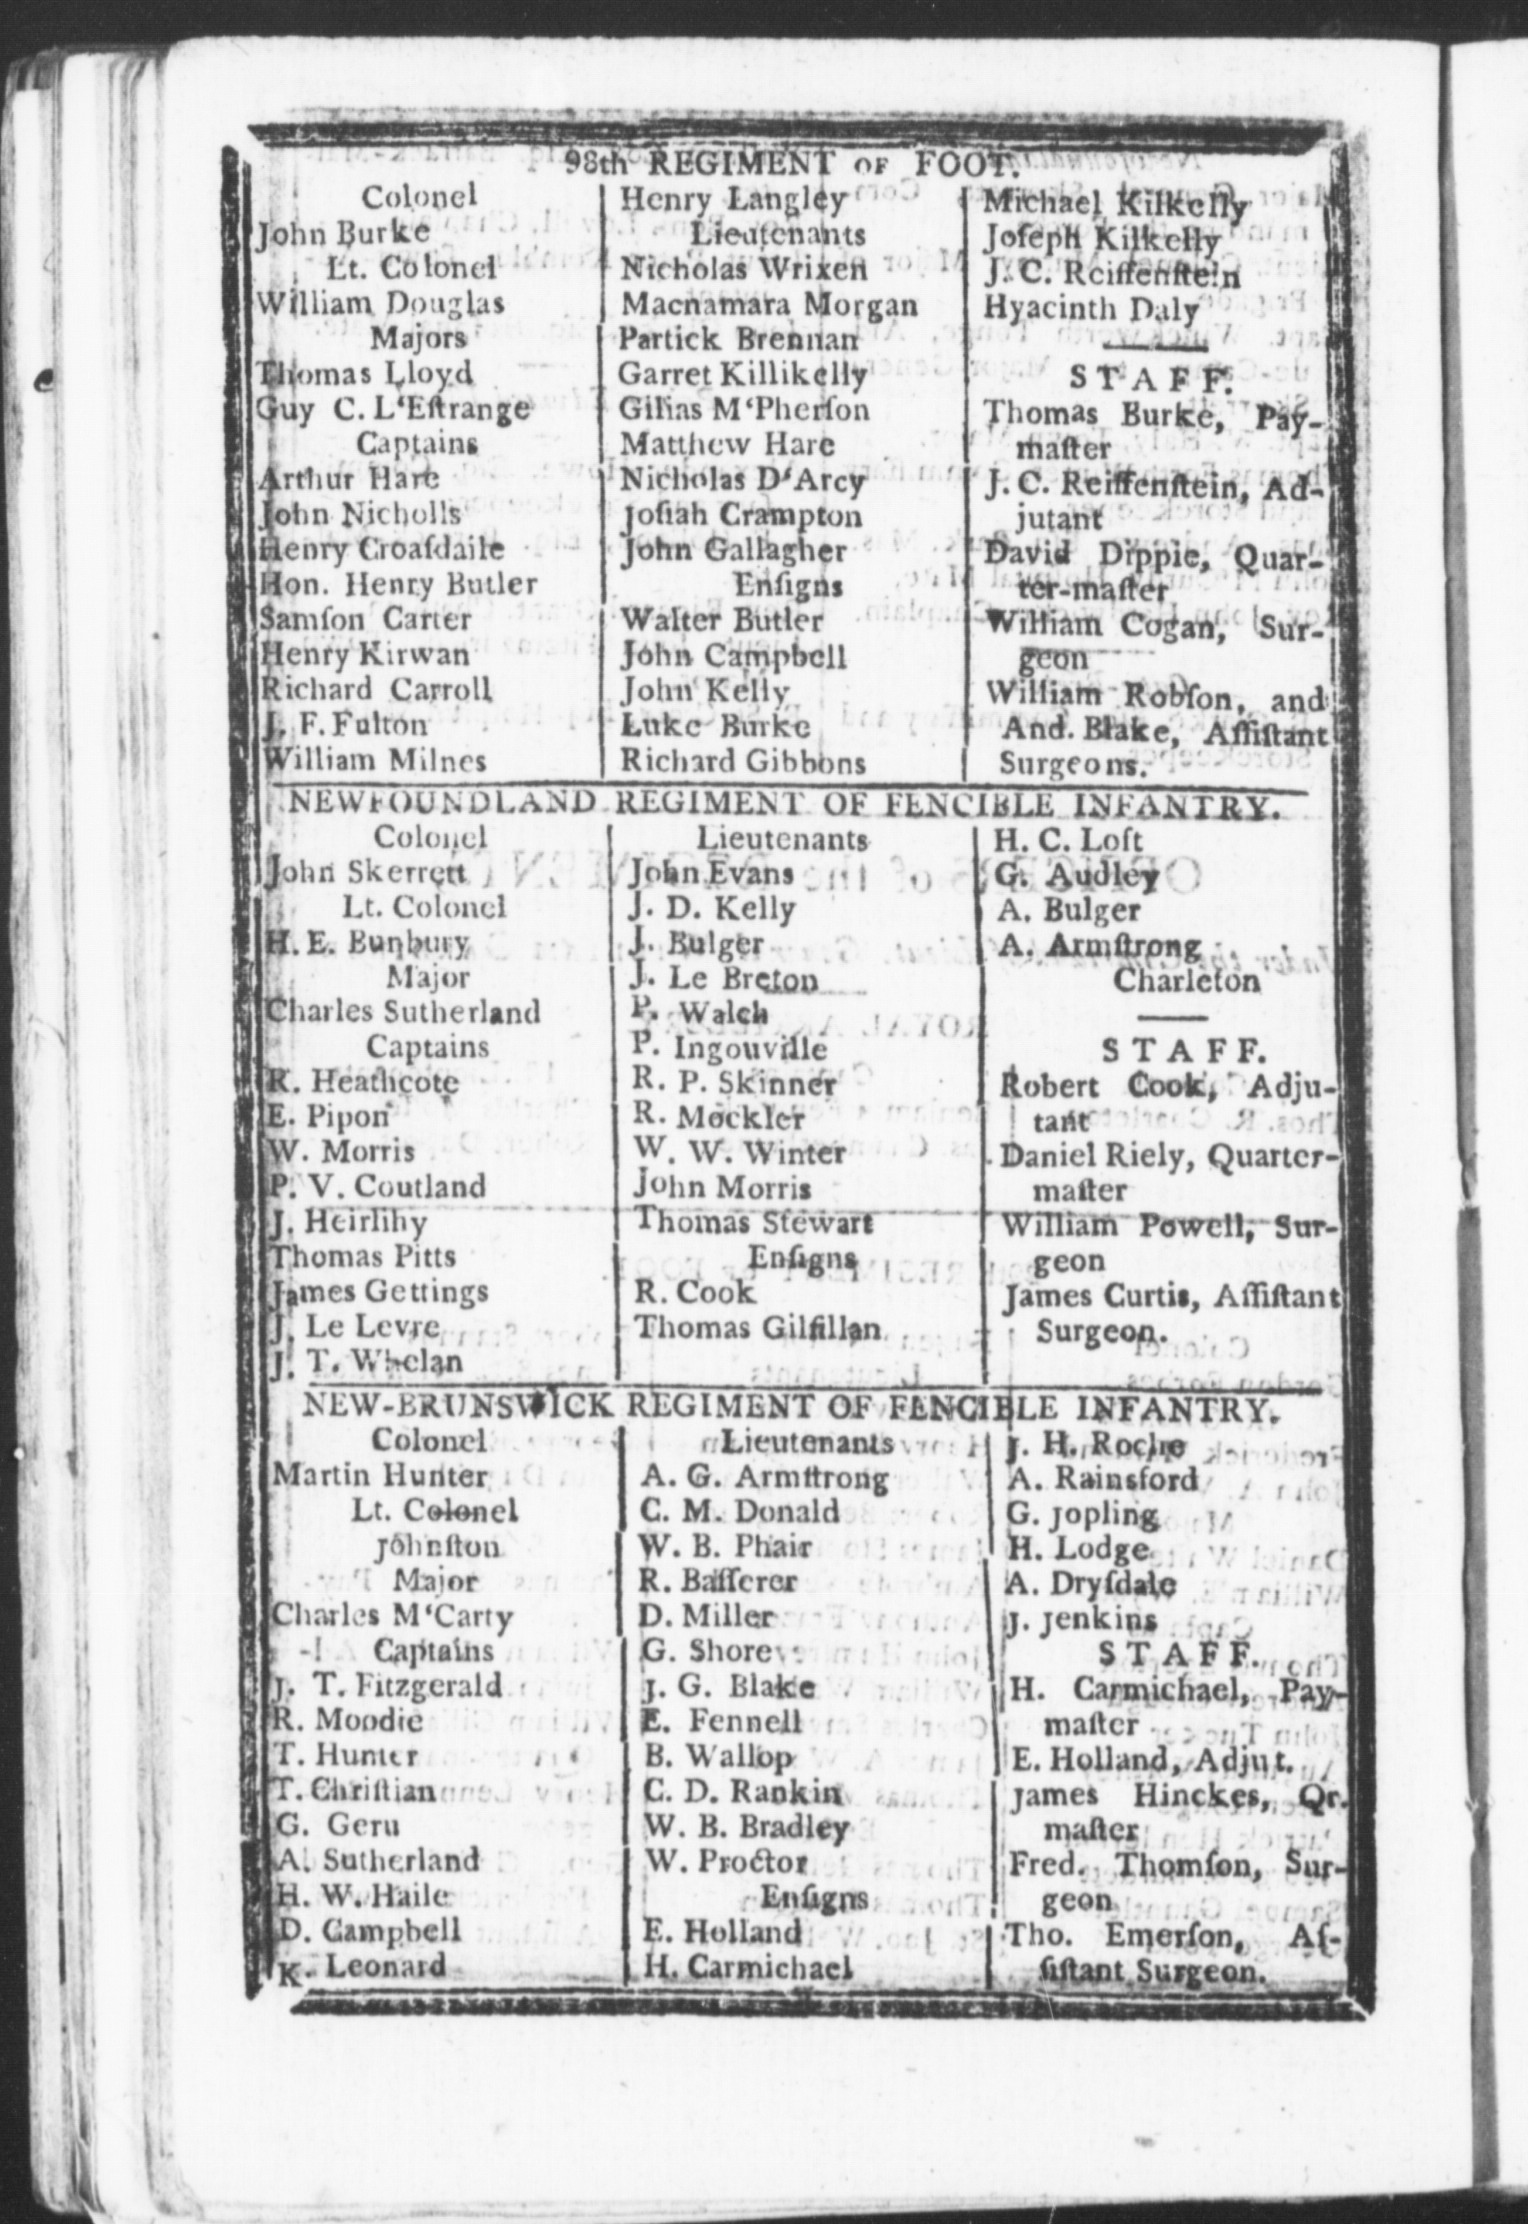 98th REGIMENT OF FOOT.
Colonel
John Burke
Lt. Colonel
William Douglas
Majors
Thomas Lloyd
Guy C. L‘Eſtrange
Captains
Arthur Hare
John Nicholls
Henry Croaſdaile
Hon. Henry Butler
Samſon Carter
Henry Kirwan
Richard Carroll
J. F. Fulton
William Milnes
Henry Langley
Lieutenants
Nicholas Wrixen
Macnamara Morgan
Partick Brennan
Garret Killikelly
Gilias M‘Pherſon
Matthew Hare
Nicholas D‘Arcy
Joſiah Crampton
John Gallagher
Enſigns
Walter Butler
John Campbell
John Kelly
Luke Burke
Richard Gibbons
Michael Kilkelly
Joſeph Kilkelly
J. C. Reiffenſtein
Hyacinth Daly
STAFF.
Thomas Burke, Pay-
maſter
J. C. Reiffenſtein, Ad-
jutant
David Dippie, Quar-
ter-maſter
William Cogan, Sur-
geon
William Robſon, and
And. Blake, Aſſiſtant
Surgeons.
NEWFOUNDLAND REGIMENT OF FENCIBLE INFANTRY.
Colonel
John Skerrett
Lt. Colonel
H. E. Bunbury
Major
Charles Sutherland
Captains
R. Heathcote
E. Pipon
W. Morris
P. V. Coutland
J. Heirlihy
Thomas Pitts
James Gettings
J. Le Levre
J. T. Whelan
Lieutenants
John Evans
J. D. Kelly
J. Bulger
J. Le Breton
P. Walch
P. Ingouville
R. P. Skinner
R. Mockler
W. W. Winter
John Morris
Thomas Stewart
Enſigns
R. Cook
Thomas Gilfillan
H. C. Loſt
G. Audley
A. Bulger
A. Armſtrong
Charleton
STAFF.
Robert Cook, Adju-
tant
Daniel Riely, Quarter-
maſter
William Powell, Sur-
geon
James Curtis, Aſſiſtant
Surgeon.
NEW-BRUNSWICK REGIMENT OF FENCIBLE INFANTRY.
Colonel
Martin Hunter
Lt. Colonel
Johnſton
Major
Charles M‘Carty
Captains
J. T. Fitzgerald
R. Moodie
T. Hunter
T. Chriſtian
G. Geru
A. Sutherland
H. W. Haile
D. Campbell
K. Leonard
Lieutenants
A. G. Armſtrong
C. M. Donald
W. B. Phair
R. Baſſerer
D. Miller
G. Shore
J. G. Blake
E. Fennell
B. Wallop
C. D. Rankin
W. B. Bradley
W. Proctor
Enſigns
E. Holland
H. Carmichael
J. H. Roche
A. Rainsford
G. Jopling
H. Lodge
A. Dryſdale
J. Jenkins
STAFF.
H. Carmichael, Pay-
maſter
E. Holland, Adjut.
James Hinckes, Qr.
maſter
Fred. Thomſon, Sur-
geon
Tho. Emerſon, Aſ-
ſiſtant Surgeon.